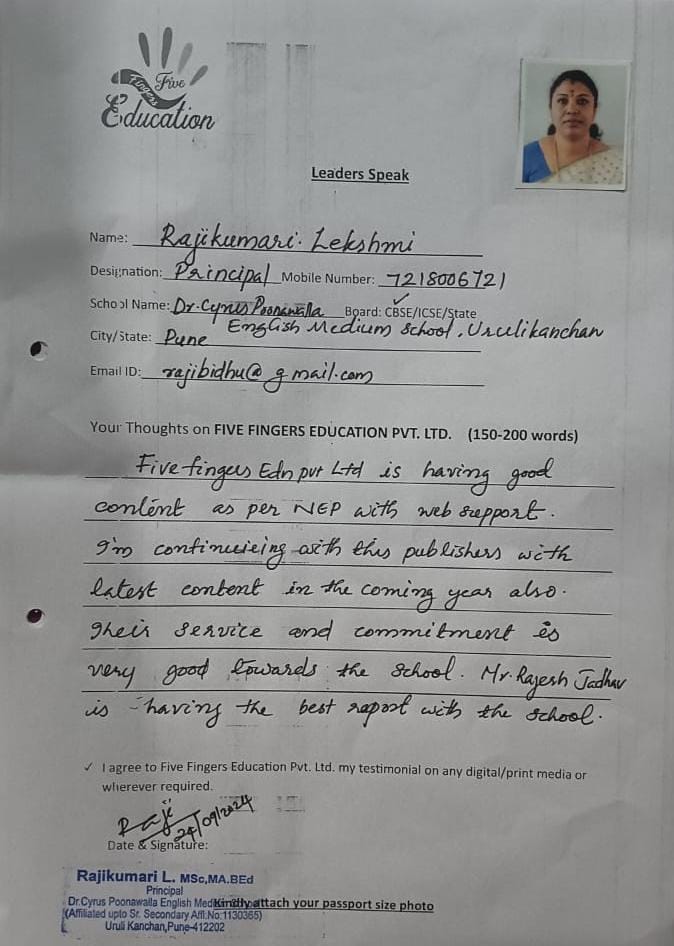 Five
Fingers
Education
Leaders Speak
Name: Rajikumari. Lekshmi
Designation: Principal Mobile Number: 7218006721
School Name: Dr. Cyrus Poonawalla Board: CBSE/ICSE/State
English Medium School, Urulikanchan
City/State: Pune
Email ID: rajibidhu@gmail.com
Your Thoughts on FIVE FINGERS EDUCATION PVT. LTD. (150-200 words)
Five fingers Edn pvt Ltd is having good
content as per NEP with web support.
I'm continuieing with this publishers with
latest content in the coming year also.
Their service and commitment is
very good towards the school. Mr. Rajesh Jadhav
is having the best raport with the school.
✓ I agree to Five Fingers Education Pvt. Ltd. my testimonial on any digital/print media or
wherever required.
Raji
24/09/2024
Date & Signature:
Rajikumari L. MSc,MA.BEd
Principal
Dr.Cyrus Poonawalla English Medium
Kindly attach your passport size photo
(Affiliated upto Sr. Secondary Affl:No:1130365)
Uruli Kanchan,Pune-412202